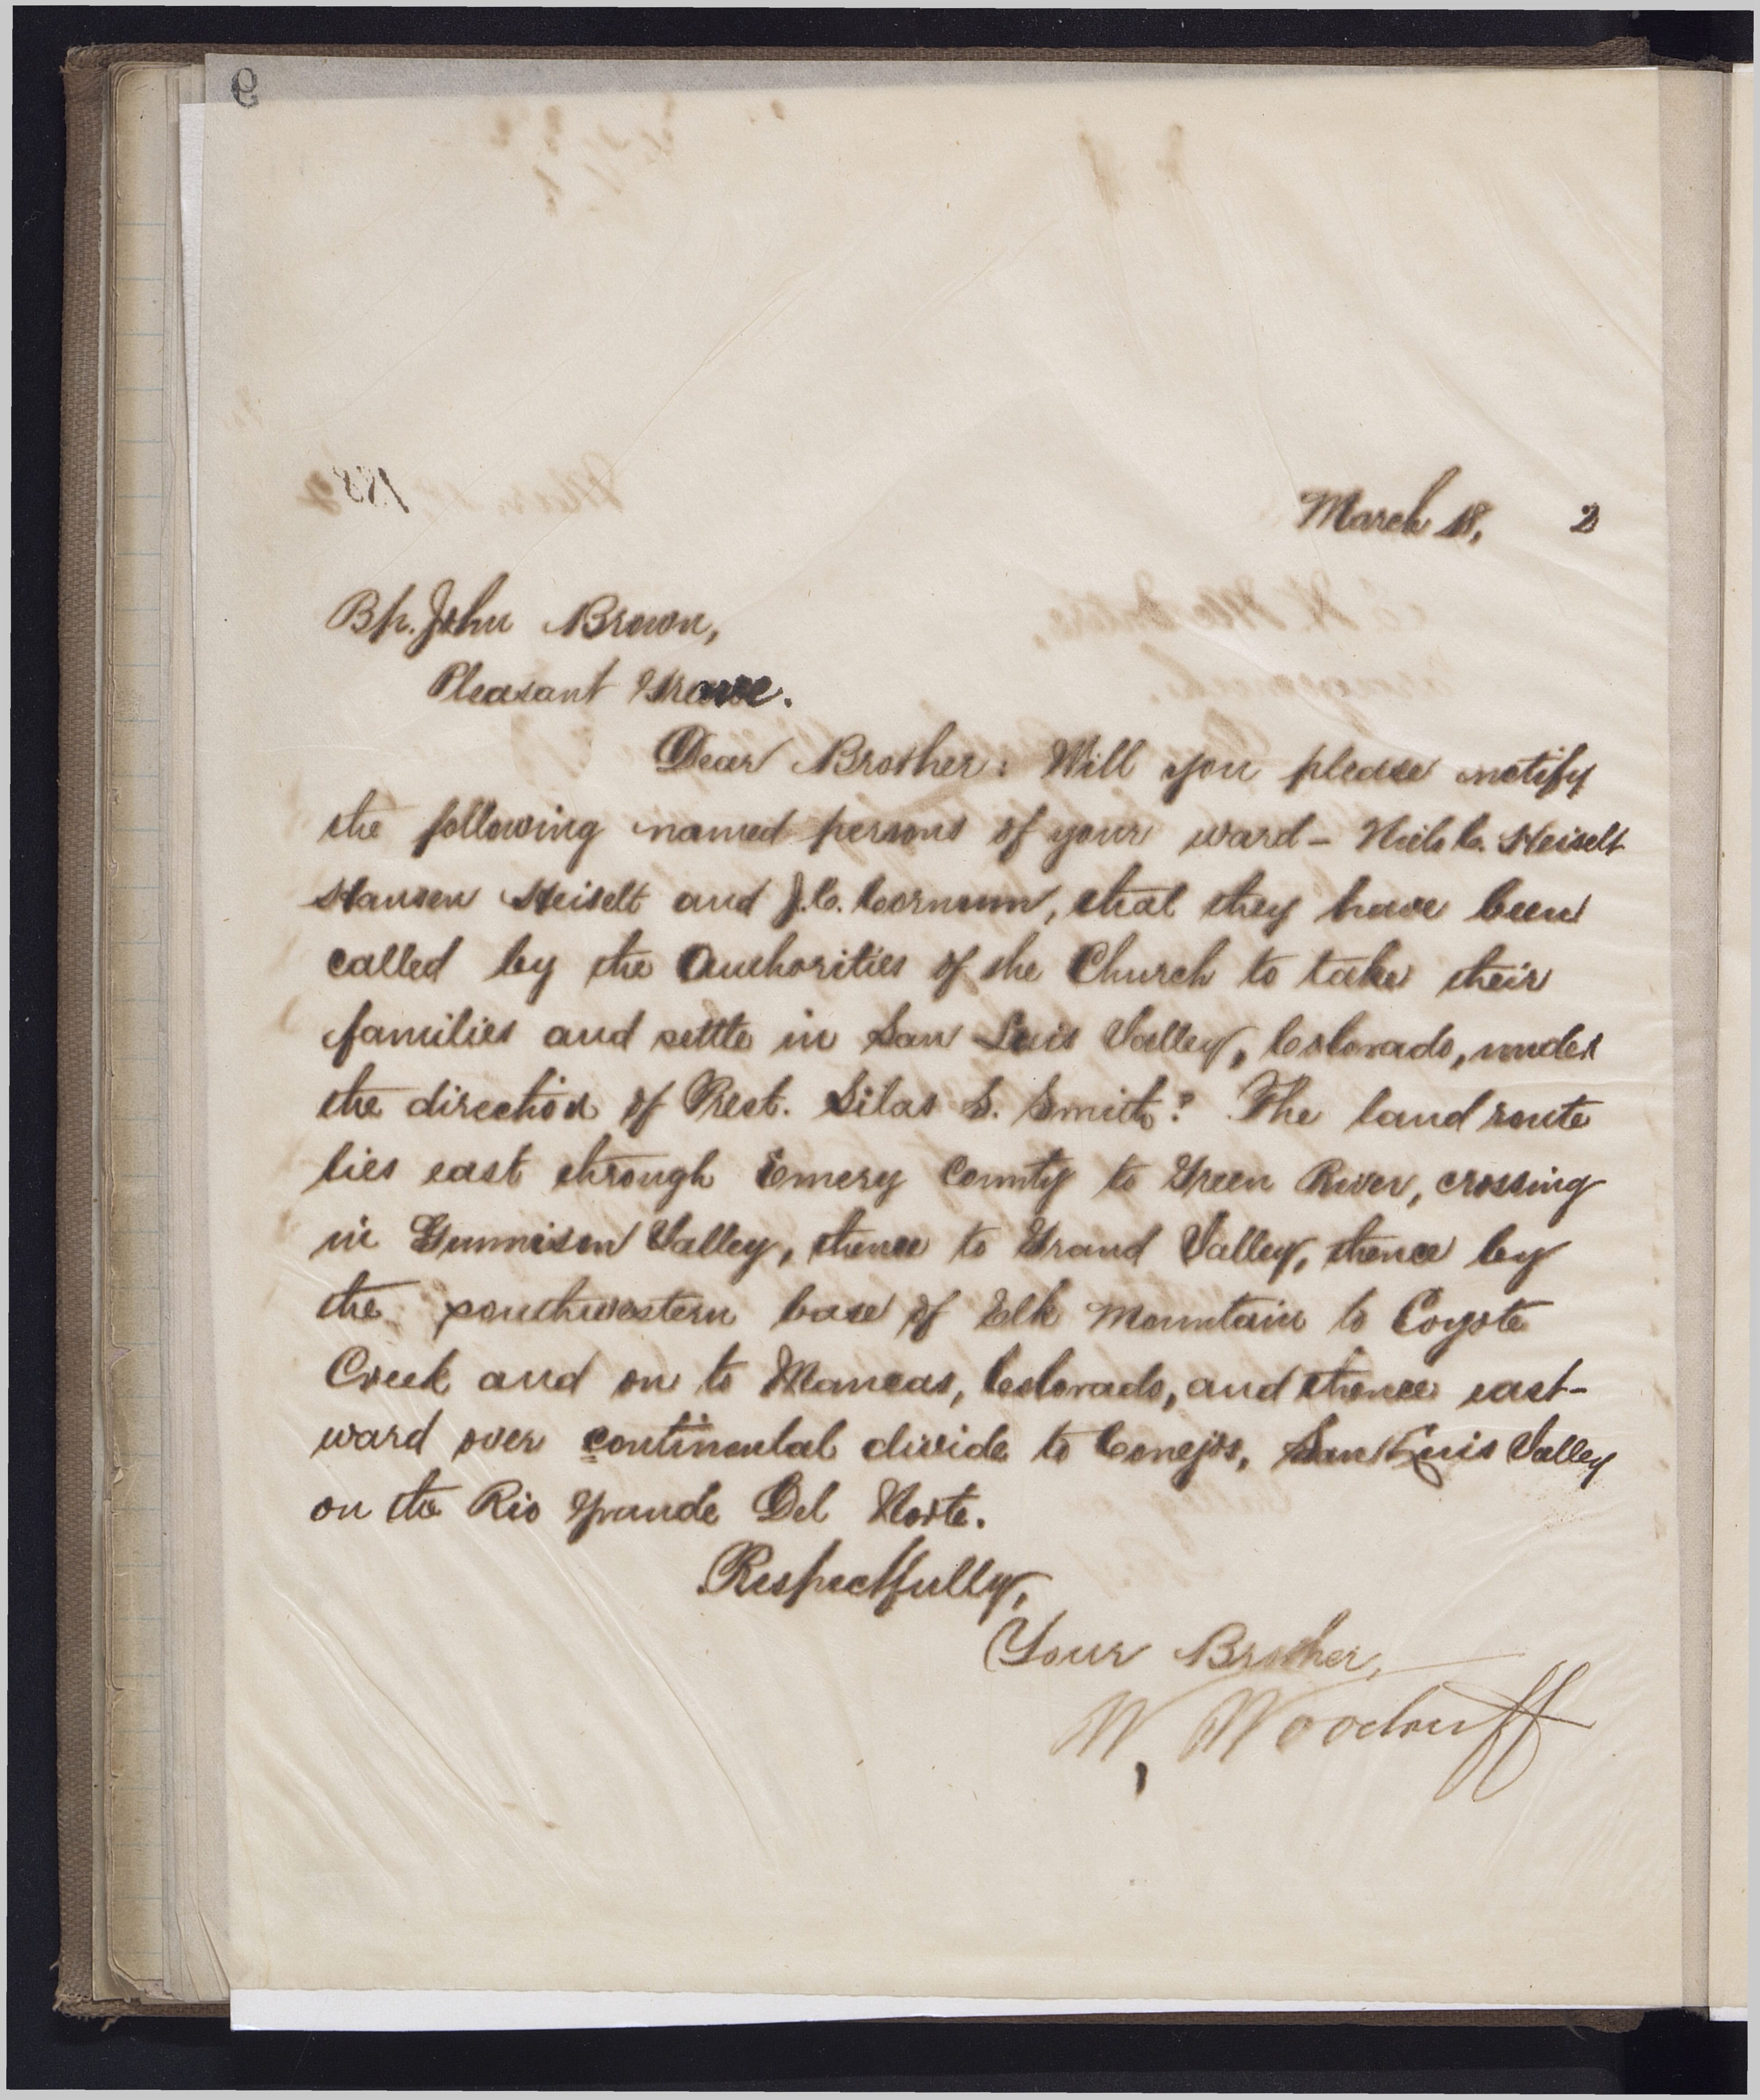 March 18, 2
Bp. John Brown,
Pleasant Grove.
Dear Brother: Will you please notify
the following named persons of your ward – Niels C. Heiselt
Hansen Heiselt and J.C. Cornum, that they have been
called by the Authorities of the Church to take their
families and settle in San Luis Valley, Colorado, under
the direction of Prest. Silas S. Smith? The land route
lies east through Emery County to Green River, crossing
in Gunnison Valley, thence to Grand Valley, thence by
the southwestern base of Elk Mountain to Coyote
Creek and on to Mancas, Colorado, and thence east-
ward over continental divide to Conejos, San Luis Valley
on the Rio Grande Del Norte.
Respectfully,
Your Brother,
W. Woodruff